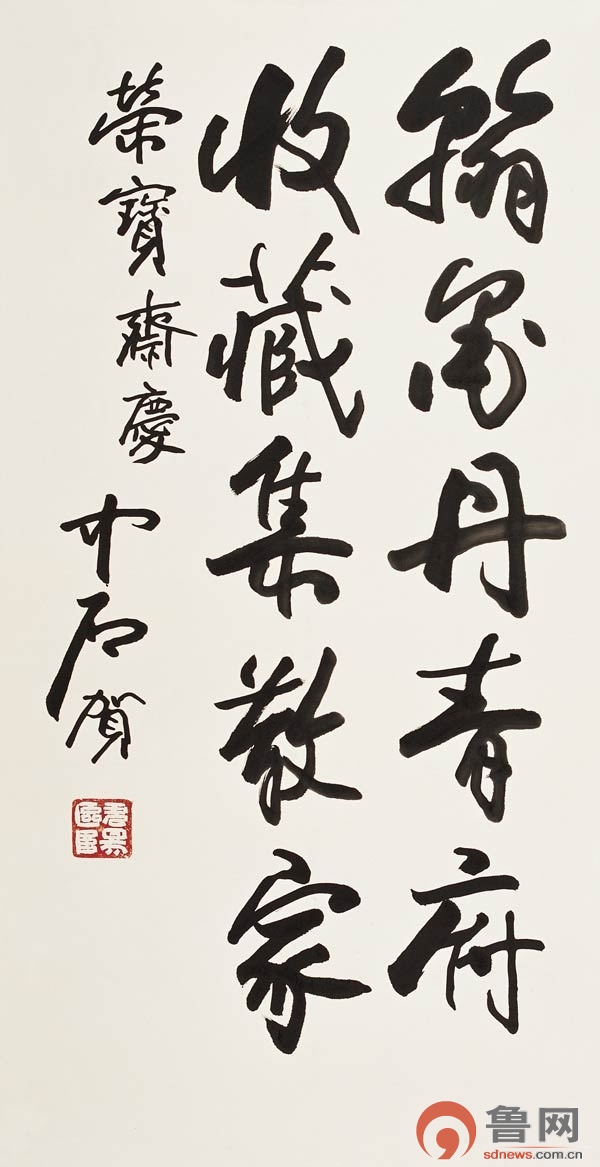 翰墨丹青府
收藏集散家
榮寶齋慶
中石賀
鲁网
sdnews.com.cn